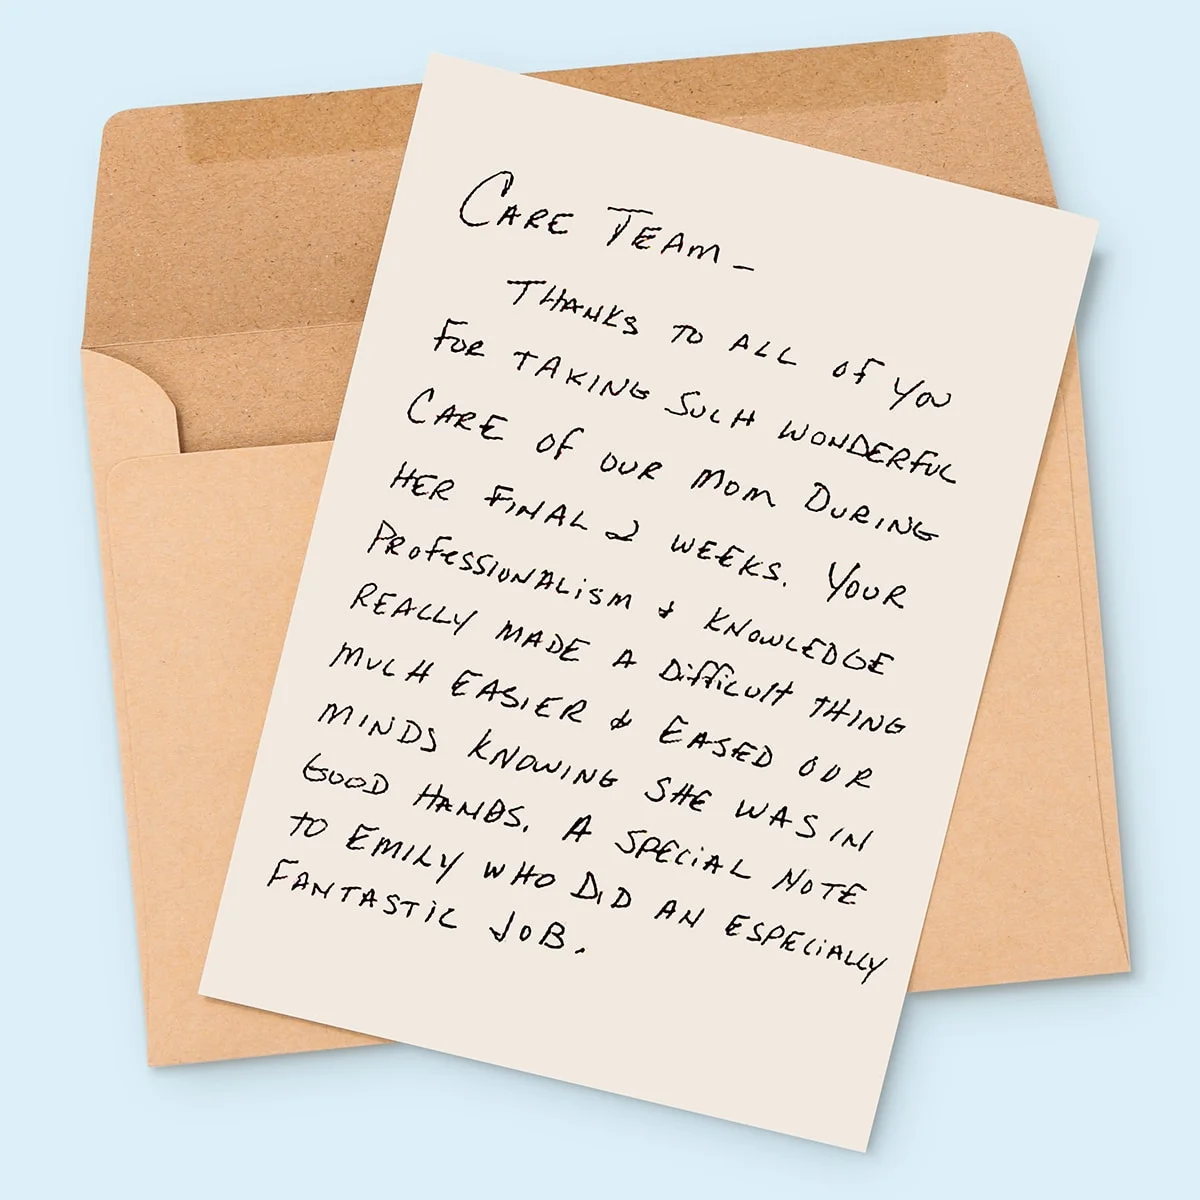 CARE TEAM -
THANKS TO ALL OF YOU
FOR TAKING SUCH WONDERFUL
CARE OF OUR MOM DURING
HER FINAL 2 WEEKS. YOUR
PROFESSIONALISM & KNOWLEDGE
REALLY MADE A DIFFICULT THING
MUCH EASIER & EASED OUR
MINDS KNOWING SHE WAS IN
GOOD HANDS. A SPECIAL NOTE
TO EMILY WHO DID AN ESPECIALLY
FANTASTIC JOB.